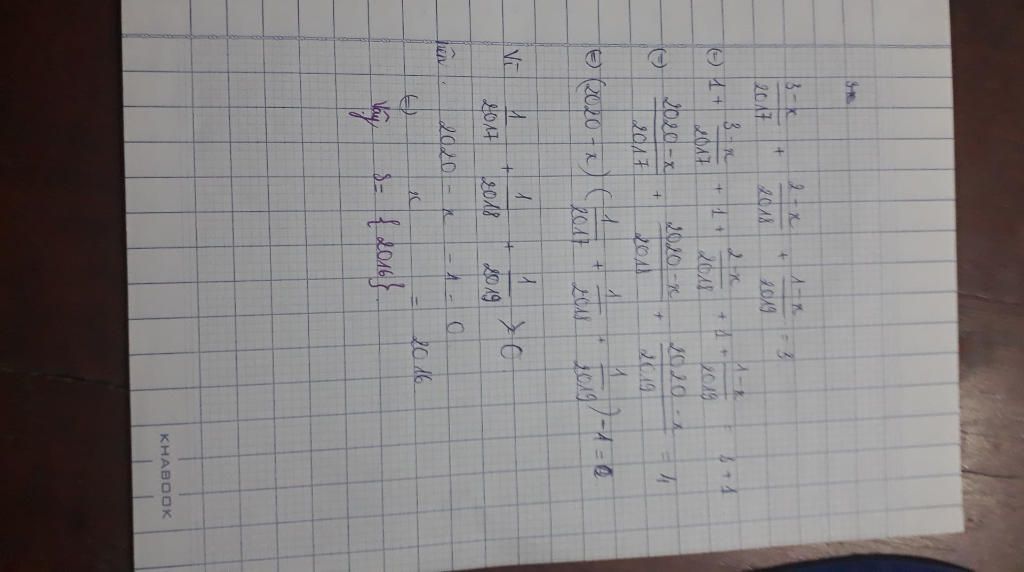 3-x/2017 + 2-x/2018 + 1-x/2019 = 3
(=) 1 + 3-x/2017 + 1 + 2-x/2018 + 1 + 1-x/2019 = 3+1
(=) 2020-x/2017 + 2020-x/2018 + 2020-x/2019 = 4
(=) (2020-x) (1/2017 + 1/2018 + 1/2019) -1 = 0
Vì 1/2017 + 1/2018 + 1/2019 > 0
nên. 2020 - x - 1 = 0
(=) x = 2016
Vậy S = {2016}
KHABOOK